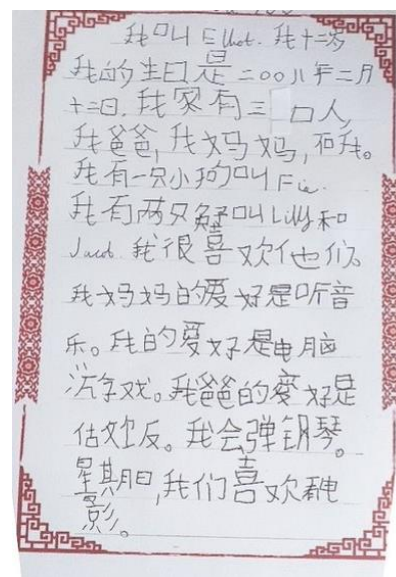 我叫Elliot. 我十二岁
我的生日是二〇〇八年二月
十二日. 我家有三口人,
我爸爸, 我妈妈, 和我。
我有一只小狗叫Fie.
我有两只蟹叫Lilly和
Jacob. 我很喜欢他们。
我妈妈的爱好是听音
乐。我的爱好是电脑
游戏。我爸爸的爱好是
做饭。我会弹钢琴。
星期日, 我们喜欢看电
影。